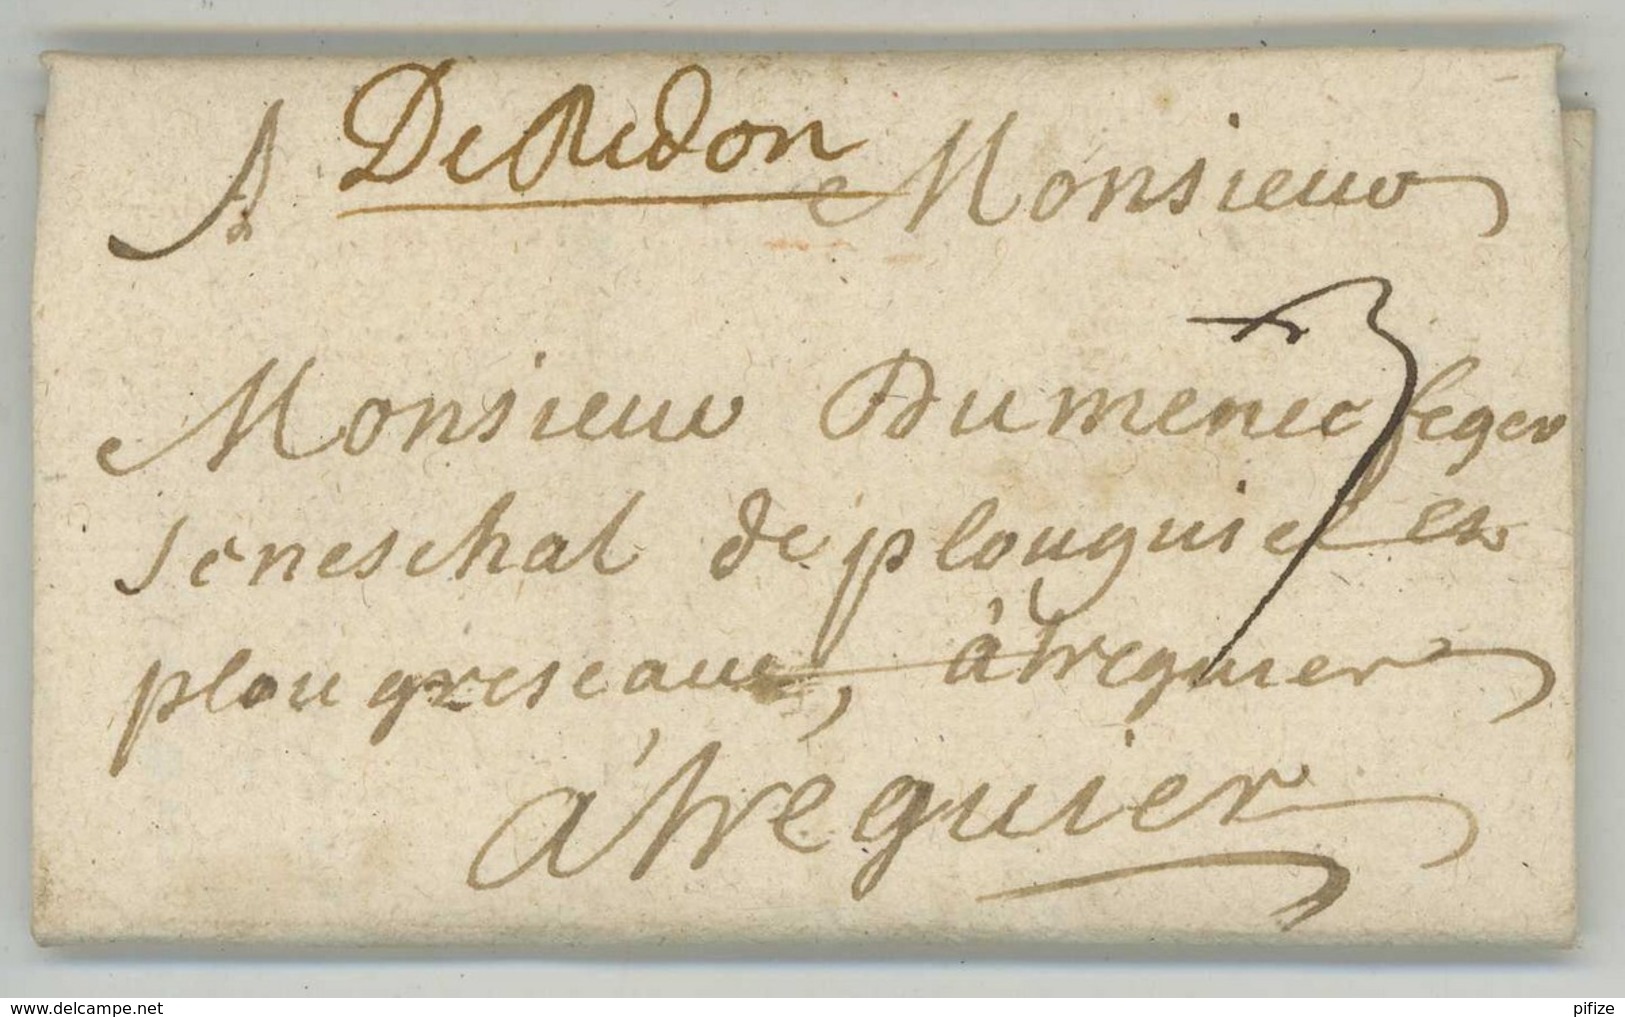 De Redon
A Monsieur
Monsieur Dumenec feger
seneschal de plouguiel et
plougrescant, à treguier
à treguier
www.delcampe.net
pifize